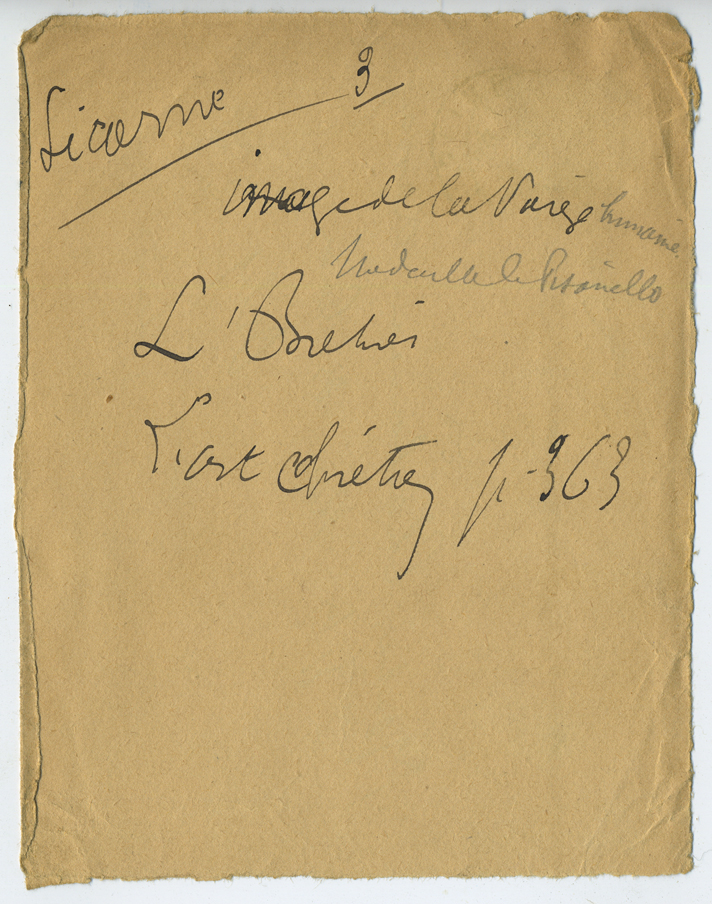 Licorne 3
image de la Vierge humaine
Medaille de Pisanello
L' Brehier
L'art chrétien p. 363